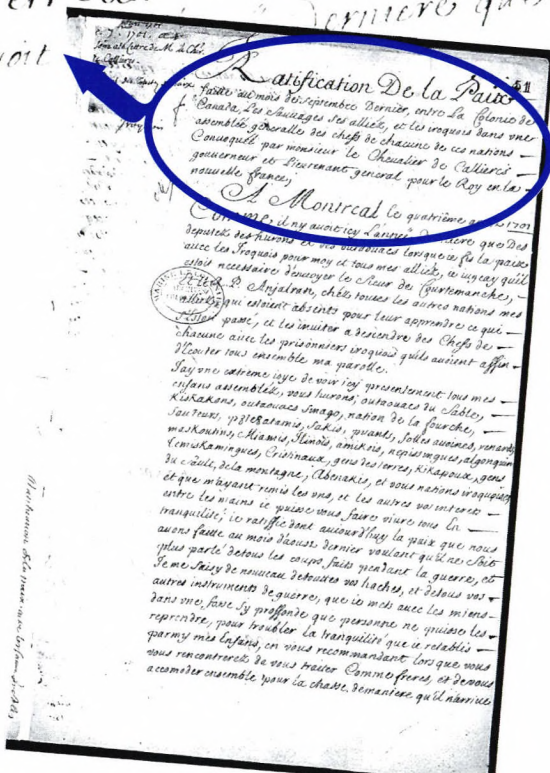 derniere qu
oit
7e 1701
Ratification De la Paix
51
faitte au mois de septembre Dernier, entre La Colonie de
Canada, Les Sauvages ses alliez, et les iroquois dans une
assemblée generalle des chefs de chacune de ces nations
Convoquée par monsieur le Chevalier de Callieres
gouverneur et Lieutenant general pour le Roy en la
nouvelle france,
A Montreal le quatrième 1701
Comme, il ny avoit icy L'année derniere que Des
deputez des hurons et des outaouacs lorsque ie fis la paix
avec les Iroquois pour moy et tous mes alliez, ie iugeay qu'il
estois necessaire d'envoyer le sieur de Courtemanche,
et le R. P. Anjalran, chez touses les autres nations mes
alliez qui estoient absents pour leur apprendre ce qui
s'estoit passé, et les inviter a descendre des Chefs de
chacune avec les prisonniers iroquois quils avoient affin
d'Ecouter tous ensemble ma parolle.
J'ay une extreme ioye de voir icy presentement tous mes
enfans assemblez, vous hurons, outaouacs du Sable,
Kiskakons, outaouacs Sinago, nation de la fourche,
Sauteurs, p8te8atamis, sakis, puants, folles avoines, renards,
maskoutins, Miamis, Ilinois, amikois, nepissingues, algonquins
Temiskamingues, Cristinaux, gens des terres, Kikapoux, gens
du Sault, de la montagne, Abenakis, et vous nations iroquoises
et que m'ayant remis les uns, et les autres vos interets
entre les mains ie puisse vous faire vivre tous En
tranquilité; ie ratiffie dont auiourd'huy la paix que nous
avons faitte au mois d'aoust dernier voulant qu'il ne soit
plus parlé de tous les coups faits pendant la guerre, et
Je me saisy de nouveau de toutes vos haches, et de tous vos
autres instruments de guerre, que ie mets avec les miens
dans une fosse sy proffonde que personne ne puisse les
reprendre, pour troubler la tranquilité que ie retablis
parmy mes Enfans, en vous recommandant lors que vous
vous rencontrerez de vous traiter Comme freres, et de vous
accomoder ensemble pour la chasse, de maniere qu'il n'arrive